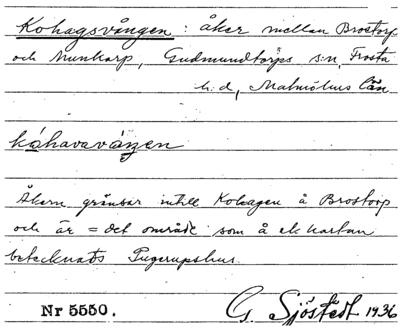 Kohagsvången: åker mellan Brostorp
och Munkarp, Gudmundtorps s:n, Frosta
h.d, Malmöhus län
kóhavaváŋen
Åkern gränsar intill Kohagen å Brostorp
och är = det område som å ek kartan
betecknats Pugerupshus.
Nr 5550. G. Sjöstedt 1936